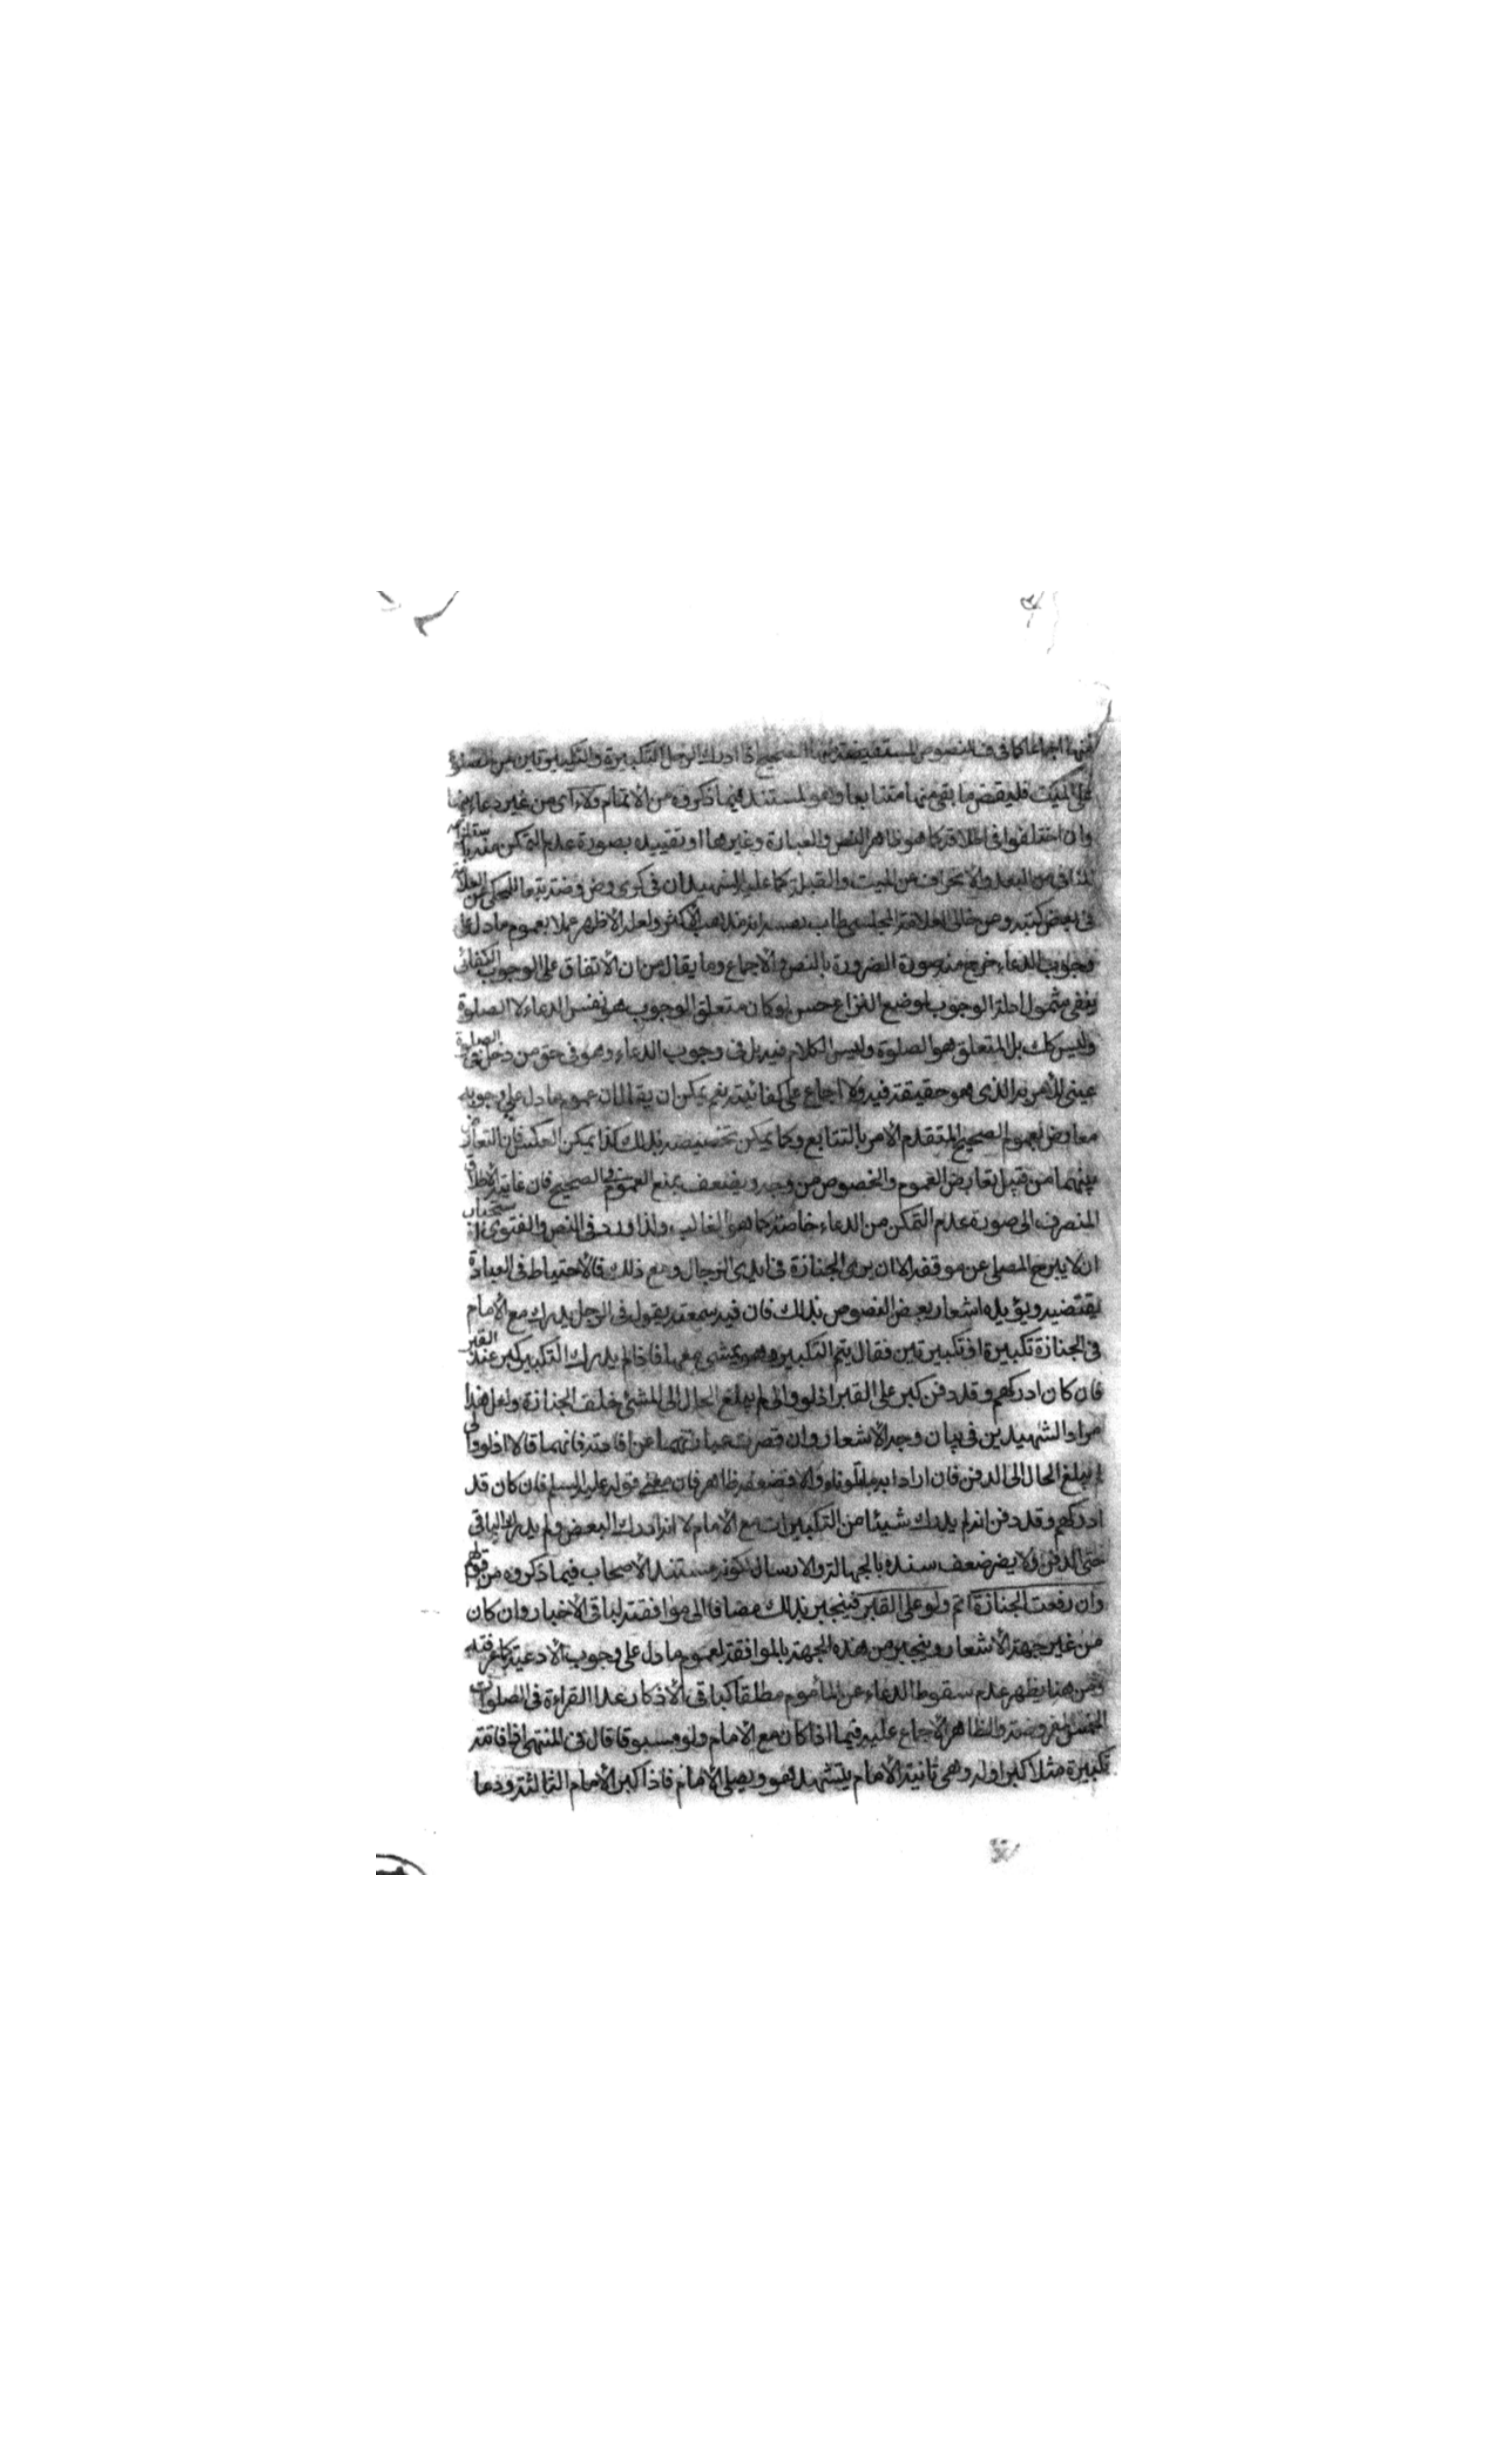 منها اجماعا كما فى ف والنصوص المستفيضة منها الصحيح اذا ادرك الرجل التكبيرة والتكبيرتين من الصلوة
على الميت فليقض ما بقى منها متتابعا وهو المستند فيما ذكروه من الاتمام ولاء اى من غير دعاء بينها
وان اختلفوا فى اطلاقه كما هو ظاهر النص والعبارة وغيرها او تقييده بصورة عدم التمكن منه باستلزامه
المنافى من البعد والانحراف عن الميت والقبلة كما عليه الشهيدان فى كرى وض وضه وتبعهما المحكى عن العلامة
فى بعض كتبه وعن خالى العلامة المجلسى طاب نسبه انه مذهب الاكثر ولعله الاظهر عملا بعموم ما دل على
وجوب الدعاء خرج منه صورة الضرورة بالنص والاجماع وما يقال من ان الاتفاق على الوجوب الكفائى
ينفى شمول ادلة الوجوب لموضع النزاع حسن لو كان متعلق الوجوب هو نفس الدعاء لا الصلوة
وليس كك بل المتعلق هو الصلوة وليس الكلام فيه بل فى وجوب الدعاء وهو فى حق من دخل فى الصلوة
عينى للامر به الذى هو حقيقة فيه ولا اجماع على كفائيته نعم يمكن ان يقال ان عموم ما دل على وجوبه
معارض بعموم الصحيح المتقدم الامر بالتتابع وكما يمكن تخصيصه بذلك كذا يمكن العكس فان التعارض
بينهما من قبيل تعارض العموم والخصوص من وجه ويضعف بمنع العموم فى الصحيح فان غايته الاطلاق
المنصرف الى صورة عدم التمكن من الدعاء خاصة كما هو الغالب ولذا ورد فى النص والفتوى استحباب
ان لا يبرح المصلى عن موقفه الا ان يرى الجنازة فى ايدى الرجال ومع ذلك فالاحتياط فى العبادة
يقتضيه ويؤيده اشعار بعض النصوص بذلك فان فيه سمعته يقول فى الرجل يدرك مع الامام
فى الجنازة تكبيرة او تكبيرتين فقال يتم التكبير وهو يمشى معها فاذا لم يدرك التكبير كبر عند القبر
فان كان ادركهم وقد دفن كبر على القبر اذ لو والى لم يبلغ الحال الى المشى خلف الجنازة ولعل هذا
مراد الشهيدين فى بيان وجه الاشعار وان قصرت عبارتهما عن افادته فانهما قالا اذ لو والى
لم يبلغ الحال الى الدفن فان ارادا به ما تلوناه والا فضعفه ظاهر فان معنى قوله عليه السلم فان كان قد
ادركهم وقد دفن انه لم يدرك شيئا من التكبيرات مع الامام لا انه ادرك البعض ولم يدرك الباقى
حتى الدفن ولا يضر ضعف سنده بالجهالة والارسال لكونه مستند الاصحاب فيما ذكروه من قولهم
وان رفعت الجنازة اتم ولو على القبر فينجبر بذلك مضافا الى موافقته لباقى الاخبار وان كان
من غير جهة الاشعار وينجبر من هذه الجهة بالموافقة لعموم ما دل على وجوب الادعية كما عرفته
ومن هنا يظهر عدم سقوط الدعاء عن المأموم مطلقا كباقى الاذكار عدا القراءة فى الصلوات
الخمس المفروضة والظاهر الاجماع عليه فيما اذا كان مع الامام ولو مسبوقا قال فى المنتهى اذا فاتته
تكبيرة مثلا كبر اوله وهى ثانية الامام يتشهد هو ويصلى الامام فاذا كبر الامام الثالثة ودعا